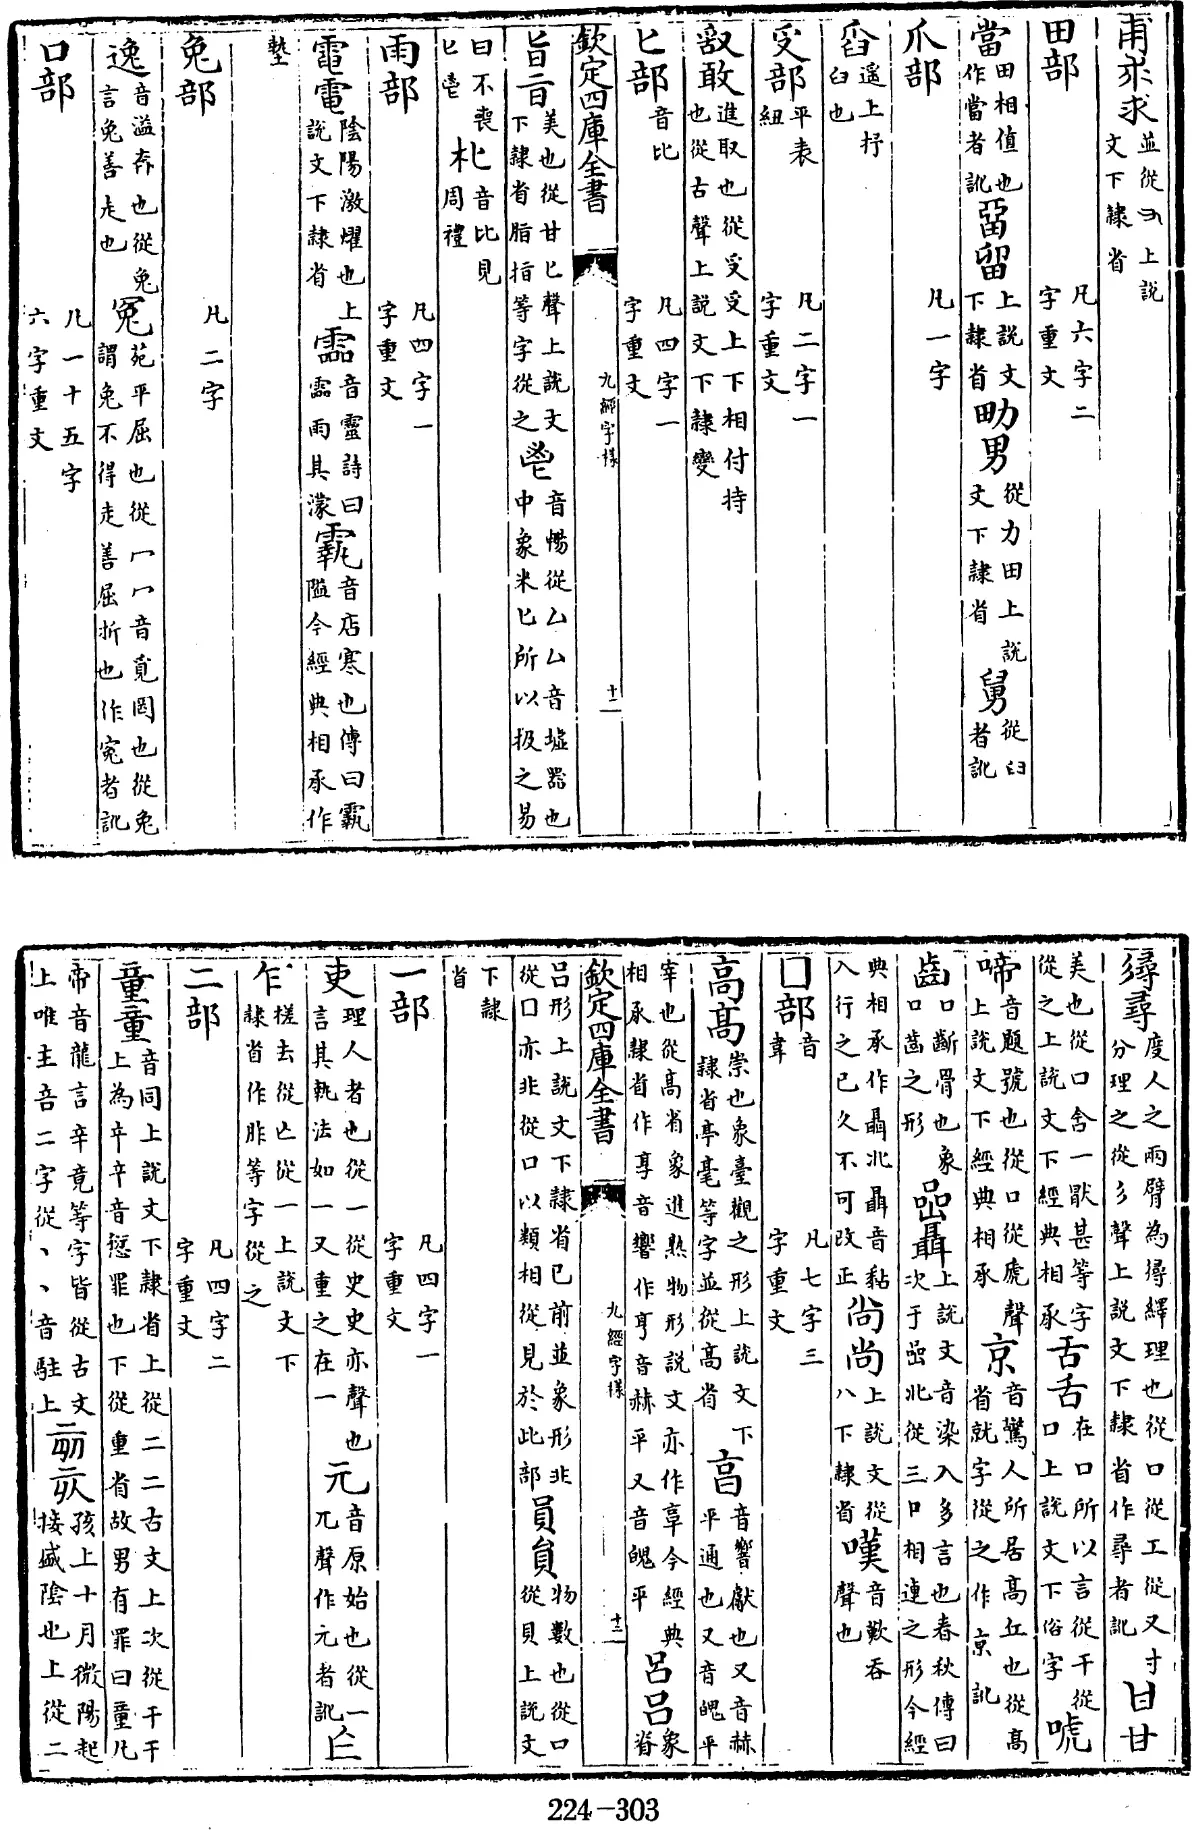 甫朮求並從上說文下隷省
田部凡六字二字重文
當田相值也作當者訛畱留上說文下隷省男從力田上說文下隷省舅從臼者訛
爪部凡一字
舀遙上抒臼也
𠬪部平表紐凡二字一字重文
敢進取也從𠬪𠬪上下相付持也從古聲上說文下隷變
匕部音比凡四字一字重文
欽定四庫全書
九經字樣
十二
旨美也從甘匕聲上說文下隷省脂指等字從之鬯音暢從凵凵音墟器也中象米匕所以扱之易
曰不喪匕鬯朼音比見周禮
雨部凡四字一字重文
電電陰陽激燿也上說文下隷省霝音靈詩曰霝雨其濛音店寒也傳曰隘今經典相承作
墊
兔部凡二字
逸音溢奔也從兔言兔善走也冤苑平屈也從冖冖音覓罔也從兔謂兔不得走善屈折也作寃者訛
口部凡一十五字六字重文
尋度人之兩臂為尋繹理也從口從工從又寸分理之從彡聲上說文下隷省作尋者訛甘甘
美也從口含一猒甚等字從之上說文下經典相承舌舌在口所以言從干從口上說文下俗字唬
啼音題號也從口從虒聲上說文下經典相承京音驚人所居高丘也從高省就字從之作亰訛
齒口齗骨也象口齒之形喦聶上說文音染入多言也春秋傳曰次于喦北從三口相連之形今經
典相承作聶北聶音黏入行之已久不可改正尚尚上說文從八下隷省嘆音歎吞聲也
囗部音韋凡七字三字重文
高髙崇也象臺觀之形上說文下隷省亭毫等字並從高省亯音響獻也又音赫平通也又音魄平
宰也從高省象進熟物形說文亦作享今經典相承隷省作享音響作亨音赫平又音魄平呂呂象脊
欽定四庫全書
九經字樣
十三
呂形上說文下隷省已前並象形非從囗亦非從口以類相從見於此部員貟物數也從口從貝上說文
下隷省
一部凡四字一字重文
吏理人者也從一從史史亦聲也言其執法如一又重之在一元音原始也從一兀聲作元者訛亾
乍槎去從亾從一上說文下隷省作胙等字從之
二部凡四字二字重文
童童音同上說文下隷省上從二二古文上次從干干上為䇂䇂音愆罪也下從重省故男有罪曰童凡
帝音龍言辛竟等字皆從古文上唯主音二字從丶丶音駐上亥孩上十月微陽起接盛陰也上從二
224-303